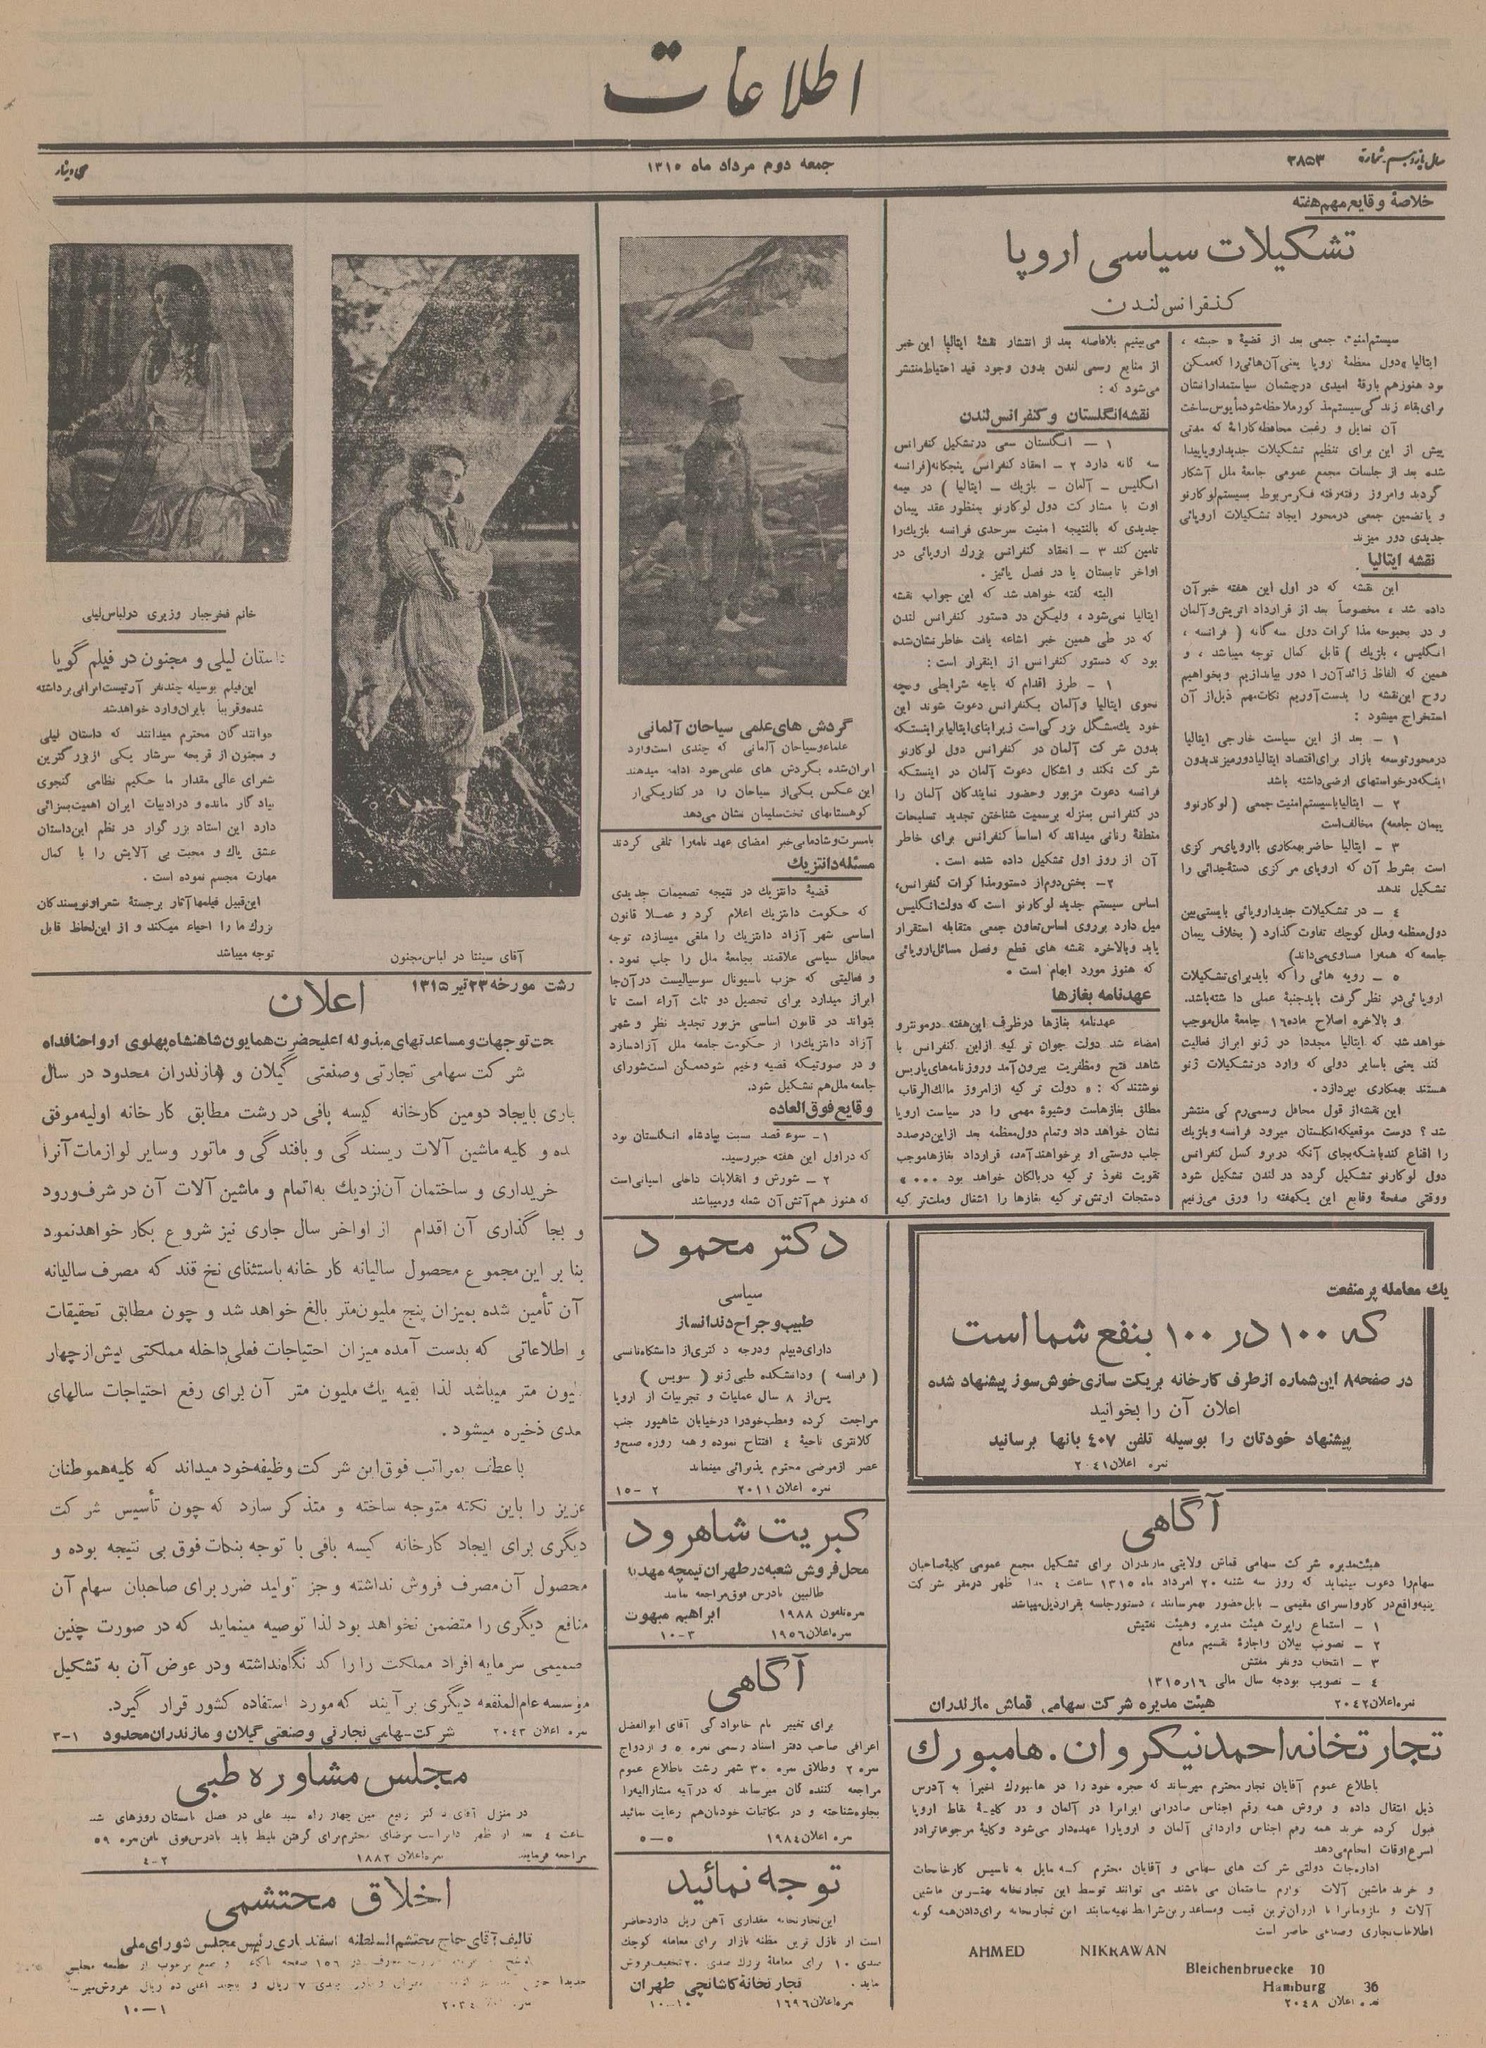 اطلاعات
سال یازدهم شماره ۲۸۵۳
جمعه دوم مرداد ماه ۱۳۱۵
خلاصهٔ وقایع مهم هفته
تشکیلات سیاسی اروپا
کنفرانس لندن
سیستم امنیت جمعی بعد از قضیهٔ « حبشه ،
بود هنوز هم بارقهٔ امیدی درچشمان سیاستمدارانشان
برای بقاء زندگی سیستم مذکور ملاحظه شود مأیوس ساخت
آن تمایل و رغبت محافظه‌کارانهٔ که مدتی
پیش از این برای تنظیم تشکیلات جدید اروپا پیدا
شده بعد از جلسات مجمع عمومی جامعهٔ ملل آشکار
گردید وامروز رفته‌رفته فکر مربوط بسیستم لوکارنو
و یا تضمین جمعی درمحور ایجاد تشکیلات اروپائی
جدیدی دور میزند
نقشه ایتالیا
این نقشه که در اول این هفته خبر آن
داده شد ، مخصوصاً بعد از قرارداد اتریش و آلمان
و در بحبوحه مذاکرات دول سه گانه ( فرانسه ،
انگلیس ، بلژیك ) قابل کمال توجه میباشد ، و
همین که الفاظ زائد آن‌را دور بیاندازیم و بخواهیم
روح این نقشه را بدست آوریم نکات مهم ذیل از آن
استخراج میشود :
۱ – بعد از این سیاست خارجی ایتالیا
درمحور توسعه بازار برای اقتصاد ایتالیا دور میزند بدون
اینکه درخواستهای ارضی داشته باشد
۲ – ایتالیا باسیستم امنیت جمعی ( لوکارنو و
پیمان جامعه) مخالف است
۳ – ایتالیا حاضر بهمکاری با اروپای مرکزی
است بشرط آن که اروپای مرکزی دستهٔ جدائی را
تشکیل ندهد
٤ – در تشکیلات جدید اروپائی بایستی بین
دول معظمه و ملل کوچك تفاوت گذارد ( بخلاف پیمان
جامعه که همه را مساوی می‌داند)
٥ – رویه هائی را که باید برای تشکیلات
اروپائی در نظر گرفت باید جنبهٔ عملی داشته باشد.
و بالاخره اصلاح ماده ۱٦ جامعهٔ ملل موجب
خواهد شد که ایتالیا مجدداً در ژنو ابراز فعالیت
کند یعنی باسایر دولی که وارد درتشکیلات ژنو
هستند بهمکاری بپردازد .
این نقشه از قول محافل رسمی رم کی منتشر
شد ؟ درست موقعیکه انگلستان میرود فرانسه و بلژیك
را اقناع کند باینکه بجای آنکه دربروکسل کنفرانس
دول لوکارنو تشکیل گردد در لندن تشکیل شود
ووقتی صفحهٔ وقایع این یکهفته را ورق می‌زنیم
می‌بینیم بلافاصله بعد از انتشار نقشهٔ ایتالیا این خبر
از منابع رسمی لندن بدون وجود قید احتیاط منتشر
می‌شود که :
نقشه انگلستان و کنفرانس لندن
۱ – انگلستان سعی درتشکیل کنفرانس
سه گانه دارد ۲ – انعقاد کنفرانس پنجگانه (فرانسه
انگلیس – آلمان – بلژیك – ایتالیا ) در نیمه
اوت با مشارکت دول لوکارنو بمنظور عقد پیمان
جدیدی که بالنتیجه امنیت سرحدی فرانسه بلژیك را
تامین کند ۳ – انعقاد کنفرانس بزرك اروپائی در
اواخر تابستان یا در فصل پائیز .
البته گفته خواهد شد که این جواب نقشه
ایتالیا نمی‌شود ، ولیکن در دستور کنفرانس لندن
که در طی همین خبر اشاعه یافت خاطر نشان شده
بود که دستور کنفرانس از اینقرار است :
۱ – طرز اقدام که باچه شرایطی و بچه
نحوی ایتالیا وآلمان بکنفرانس دعوت شوند این
خود یك مشگل بزرگی است زیرا بنای ایتالیا براینستکه
بدون شرکت آلمان در کنفرانس دول لوکارنو
شرکت نکند و اشکال دعوت آلمان در اینستکه
فرانسه دعوت مزبور وحضور نمایندگان آلمان را
در کنفرانس بمنزله برسمیت شناختن تجدید تسلیحات
منطقهٔ رنانی میداند که اساساً کنفرانس برای خاطر
آن از روز اول تشکیل داده شده است .
۲– بخش دوم از دستور مذاکرات کنفرانس،
اساس سیستم جدید لوکارنو است که دولت انگلیس
میل دارد برروی اساس تعاون جمعی متقابله استقرار
یابد وبالاخره نقشه های قطع وفصل مسائل اروپائی
که هنوز مورد ابهام است .
عهدنامه بغازها
عهدنامه بغازها درظرف این هفته درمونترو
امضاء شد دولت جوان ترکیه ازاین کنفرانس با
شاهد فتح ومظفریت بیرون آمد وروزنامه‌های پاریس
نوشتند که : « دولت ترکیه ازامروز مالك الرقاب
مطلق بغازهاست وشیوهٔ مهمی را در سیاست اروپا
نشان خواهد داد وتمام دول معظمه بعد ازاین درصدد
جلب دوستی او برخواهند آمد، قرارداد بغازها موجب
تقویت نفوذ ترکیه دربالکان خواهد بود ....»
دستجات ارتش ترکیه بغازها را اشغال وملت ترکیه
گردش های علمی سیاحان آلمانی
علماء و سیاحان آلمانی که چندی است وارد
ایران شده بگردش های علمی خود ادامه میدهند
این عکس یکی از سیاحان را در کنار یکی از
کوهستانهای تخت سلیمان نشان می‌دهد
بامسرت و شادمانی خبر امضای عهد نامه را تلقی کردند
مسئله دانتزیك
قضیهٔ دانتزیك در نتیجه تصمیمات جدیدی
که حکومت دانتزیك اعلام کرد و عملا قانون
اساسی شهر آزاد دانتزیك را ملغی میسازد، توجه
محافل سیاسی علاقمند بجامعهٔ ملل را جلب نمود .
و فعالیتی که حزب ناسیونال سوسیالیست درآن‌جا
ابراز میدارد برای تحصیل دو ثلث آراء است تا
بتواند در قانون اساسی مزبور تجدید نظر و شهر
آزاد دانتزیك را از حکومت جامعه ملل آزاد سازد
و در صورتیکه قضیه وخیم شود ممکن است شورای
جامعه ملل هم تشکیل شود.
وقایع فوق العاده
۱– سوء قصد نسبت بپادشاه انگلستان بود
که در اول این هفته خبر رسید.
۲ – شورش و انقلابات داخلی اسپانی است
که هنوز هم آتش آن شعله ور میباشد
خانم فخر جبار وزیری در لباس لیلی
آقای سپنتا در لباس مجنون
داستان لیلی و مجنون در فیلم گویا
این فیلم بوسیله چند نفر آرتیست ایرانی برداشته
شده و قریباً بایران وارد خواهد شد
خوانندگان محترم میدانند که داستان لیلی
و مجنون از قریحه سرشار یکی از بزرگترین
شعرای عالی مقدار ما حکیم نظامی گنجوی
بیادگار مانده و در ادبیات ایران اهمیت بسزائی
دارد این استاد بزرگوار در نظم این داستان
عشق پاك و محبت بی آلایش را با کمال
مهارت مجسم نموده است .
این قبیل فیلمها آثار برجستهٔ شعرا و نویسندگان
بزرك ما را احیاء میکند و از این لحاظ قابل
توجه میباشد
رشت مورخه ۲۳ تیر ۱۳۱۵
اعلان
تحت توجهات و مساعدتهای مبذوله اعلیحضرت همایون شاهنشاه پهلوی ارواحنا فداه
شرکت سهامی تجارتی وصنعتی گیلان و مازندران محدود در سال
جاری بایجاد دومین کارخانه کیسه بافی در رشت مطابق کارخانه اولیه موفق
شده و کلیه ماشین آلات ریسندگی و بافندگی و ماتور وسایر لوازمات آنرا
خریداری و ساختمان آن نزدیك به اتمام و ماشین آلات آن در شرف ورود
و بجا گذاری آن اقدام از اواخر سال جاری نیز شروع بکار خواهد نمود
بنا بر این مجموع محصول سالیانه کارخانه باستثنای نخ قند که مصرف سالیانه
آن تأمین شده بمیزان پنج ملیون متر بالغ خواهد شد و چون مطابق تحقیقات
و اطلاعاتی که بدست آمده میزان احتیاجات فعلی داخله مملکتی بیش از چهار
ملیون متر میباشد لذا بقیه یك ملیون متر آن برای رفع احتیاجات سالهای
بعدی ذخیره میشود .
با عطف بمراتب فوق این شرکت وظیفه خود میداند که کلیه هموطنان
عزیز را باین نکته متوجه ساخته و متذکر سازد که چون تأسیس شرکت
دیگری برای ایجاد کارخانه کیسه بافی با توجه بنکات فوق بی نتیجه بوده و
محصول آن مصرف فروش نداشته و جز تولید ضرر برای صاحبان سهام آن
منافع دیگری را متضمن نخواهد بود لذا توصیه مینماید که در صورت چنین
تصمیمی سرمایه افراد مملکت را راکد نگاه نداشته ودر عوض آن به تشکیل
مؤسسه عام المنفعه دیگری برآیند که مورد استفاده کشور قرار گیرد.
نمره اعلان ۲۰٤۳ شرکت سهامی تجارتی وصنعتی گیلان و مازندران محدود ۱–۳
دکتر محمود
سیاسی
طبیب و جراح دندانساز
دارای دیپلم ودرجه دکتری از دانشگاه نانسی
( فرانسه ) ودانشکده طبی ژنو ( سویس )
پس از ۸ سال عملیات و تجربیات از اروپا
مراجعت کرده ومطب خود را درخیابان شاهپور جنب
کلانتری ناحیهٔ ٤ افتتاح نموده و همه روزه صبح و
عصر از مرضی محترم پذیرائی مینماید
نمره اعلان ۲۰۱۱ ۲–۱۵
کبریت شاهرود
محل فروش شعبه در طهران تیمچه مهدیه
طالبین بآدرس فوق مراجعه نمایند
نمره تلفون ۱۹۸۸ ابراهیم مبهوت
نمره اعلان ۱۹۵٦ ۳–۱۰
آگاهی
برای تغییر نام خانوادگی آقای ابوالفضل
اعرافی صاحب دفتر اسناد رسمی نمره ٥ و ازدواج
نمره ۲ وطلاق نمره ۳۰ شهر رشت باطلاع عموم
مراجعه کننده گان میرساند که درآتیه مشارالیه را
نمره اعلان ۱۹۸٤ ٥–٥
توجه نمائید
این تجارتخانه مقداری آهن ریل دارد حاضر
است از نازل ترین مظنه بازار برای معامله کوچك
صدی ۱۰ برای معاملهٔ بزرك صدی ۲۰ تخفیف فروش
نماید . تجارتخانهٔ کاشانچی طهران
نمره اعلان ۱٦۹٦ ۱۰–۱۰
یك معامله پر منفعت
که ۱۰۰ در ۱۰۰ بنفع شما است
در صفحه ۸ این شماره از طرف کارخانه بریکت سازی خوش سوز پیشنهاد شده
اعلان آن را بخوانید
پیشنهاد خودتان را بوسیله تلفن ٤۰۷ بآنها برسانید
نمره اعلان ۲۰٤۱
آگاهی
هیئت مدیره شرکت سهامی قماش ولایتی مازندران برای تشکیل مجمع عمومی کلیهٔ صاحبان
سهام را دعوت مینماید که روز سه شنبه ۲۰ امرداد ماه ۱۳۱۵ ساعت ٤ بعد از ظهر در مقر شرکت
پنبه واقع در کاروانسرای مقیمی – بابل حضور بهمرسانند ، دستور جلسه بقرار ذیل میباشد
۱ – استماع راپرت هیئت مدیره وهیئت تفتیش
۲ – تصویب بیلان واجازهٔ تقسیم منافع
۳ – انتخاب دونفر مفتش
٤ – تصویب بودجه سال مالی ۱٦ر۱۳۱۵
نمره اعلان ۲۰٤۲ هیئت مدیره شرکت سهامی قماش مازندران
تجارتخانه احمد نیکروان. هامبورك
باطلاع عموم آقایان تجار محترم میرساند که حجره خود را در هامبورك اخیراً به آدرس
ذیل انتقال داده و فروش همه رقم اجناس صادراتی ایران را در آلمان و در کلیهٔ نقاط اروپا
قبول کرده خرید همه رقم اجناس وارداتی آلمان و اروپا را عهده‌دار می‌شود وکلیهٔ مرجوعات را در
اسرع اوقات انجام می‌دهد
اداره‌جات دولتی شرکت های سهامی و آقایان محترم که مایل به تاسیس کارخانجات
و خرید ماشین آلات ولوازم ساختمان می باشند می توانند توسط این تجارتخانه بهترین ماشین
اطلاعات تجاری وصناعی حاضر است
AHMED NIKRAWAN
Bleichenbruecke 10
Hamburg 36
نمره اعلان ۲۰٤۸
مجلس مشاوره طبی
مراجعه فرمایند نمره اعلان ۱۸۸۲ ۲–٤
اخلاق محتشمی
تالیف آقای حاج محتشم السلطنه اسفندیاری رئیس مجلس شورای ملی
۱–۱۰